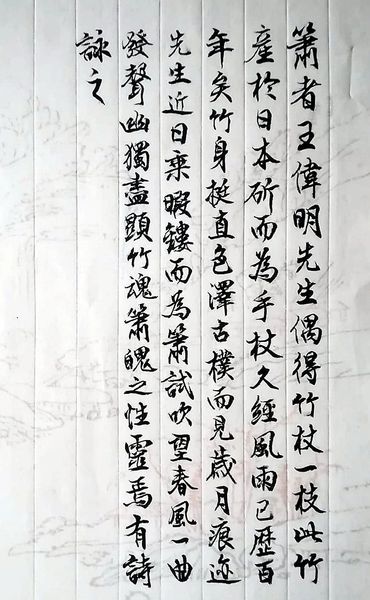 簫者王偉明先生偶得竹杖一枝此竹
產於日本斫而為手杖久經風雨已歷百
年矣竹身挺直色澤古樸而見歲月痕迹
先生近日乘暇鏤而為簫試吹望春風一曲
發聲幽獨盡顯竹魂簫魄之性靈焉有詩
詠之